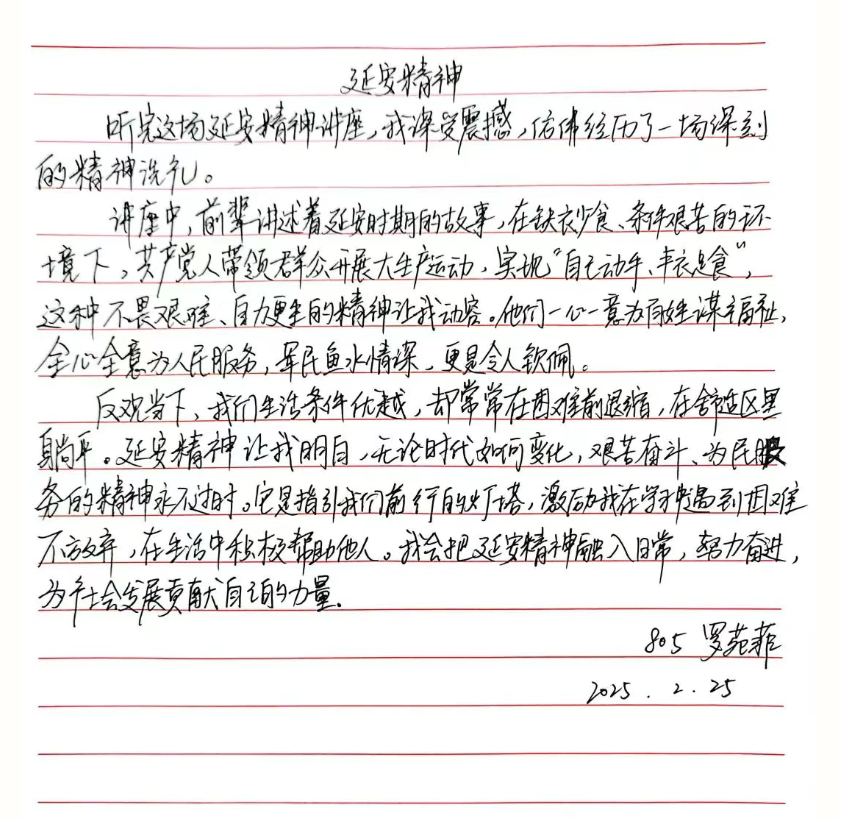 延安精神
听完这场延安精神讲座,我深受震撼,仿佛经历了一场深刻
的精神洗礼。
讲座中,前辈讲述着延安时期的故事,在缺衣少食、条件艰苦的环
境下,共产党人带领群众开展大生产运动,实现“自己动手、丰衣足食”,
这种不畏艰难、自力更生的精神让我动容。他们一心一意为百姓谋福祉,
全心全意为人民服务,军民鱼水情深,更是令人钦佩。
反观当下,我们生活条件优越,却常常在困难前退缩,在舒适区里
躺平。延安精神让我明白,无论时代如何变化,艰苦奋斗、为民服
务的精神永不过时。它是指引我们前行的灯塔,激励我在学习中遇到困难
不放弃,在生活中积极帮助他人。我会把延安精神融入日常,努力奋进,
为社会发展贡献自己的力量.
805 罗苑菲
2025.2.25